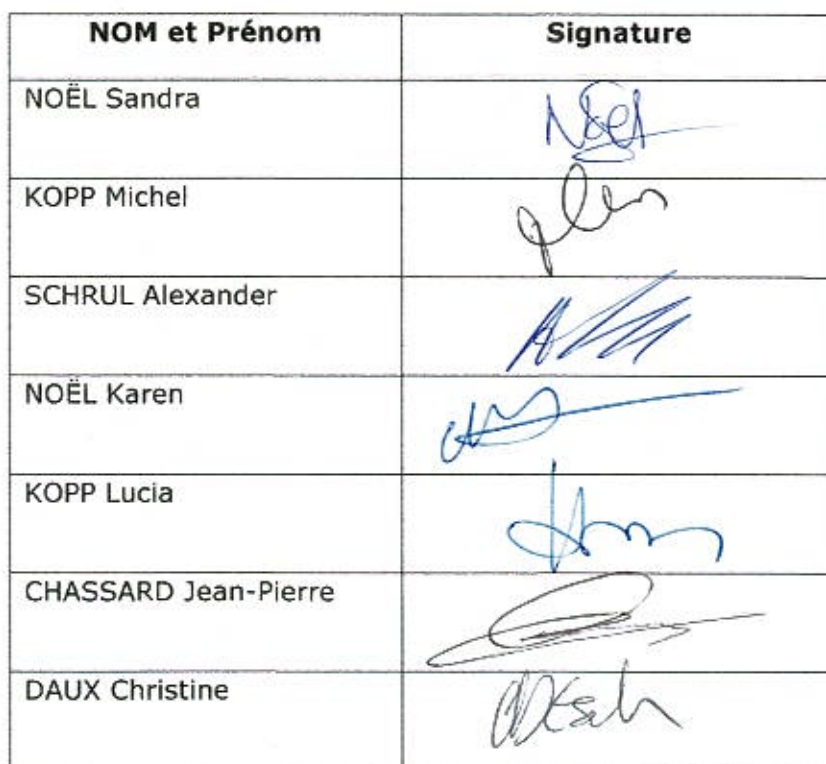 NOM et Prénom Signature
NOËL Sandra Noël
KOPP Michel
SCHRUL Alexander
NOËL Karen
KOPP Lucia
CHASSARD Jean-Pierre
DAUX Christine